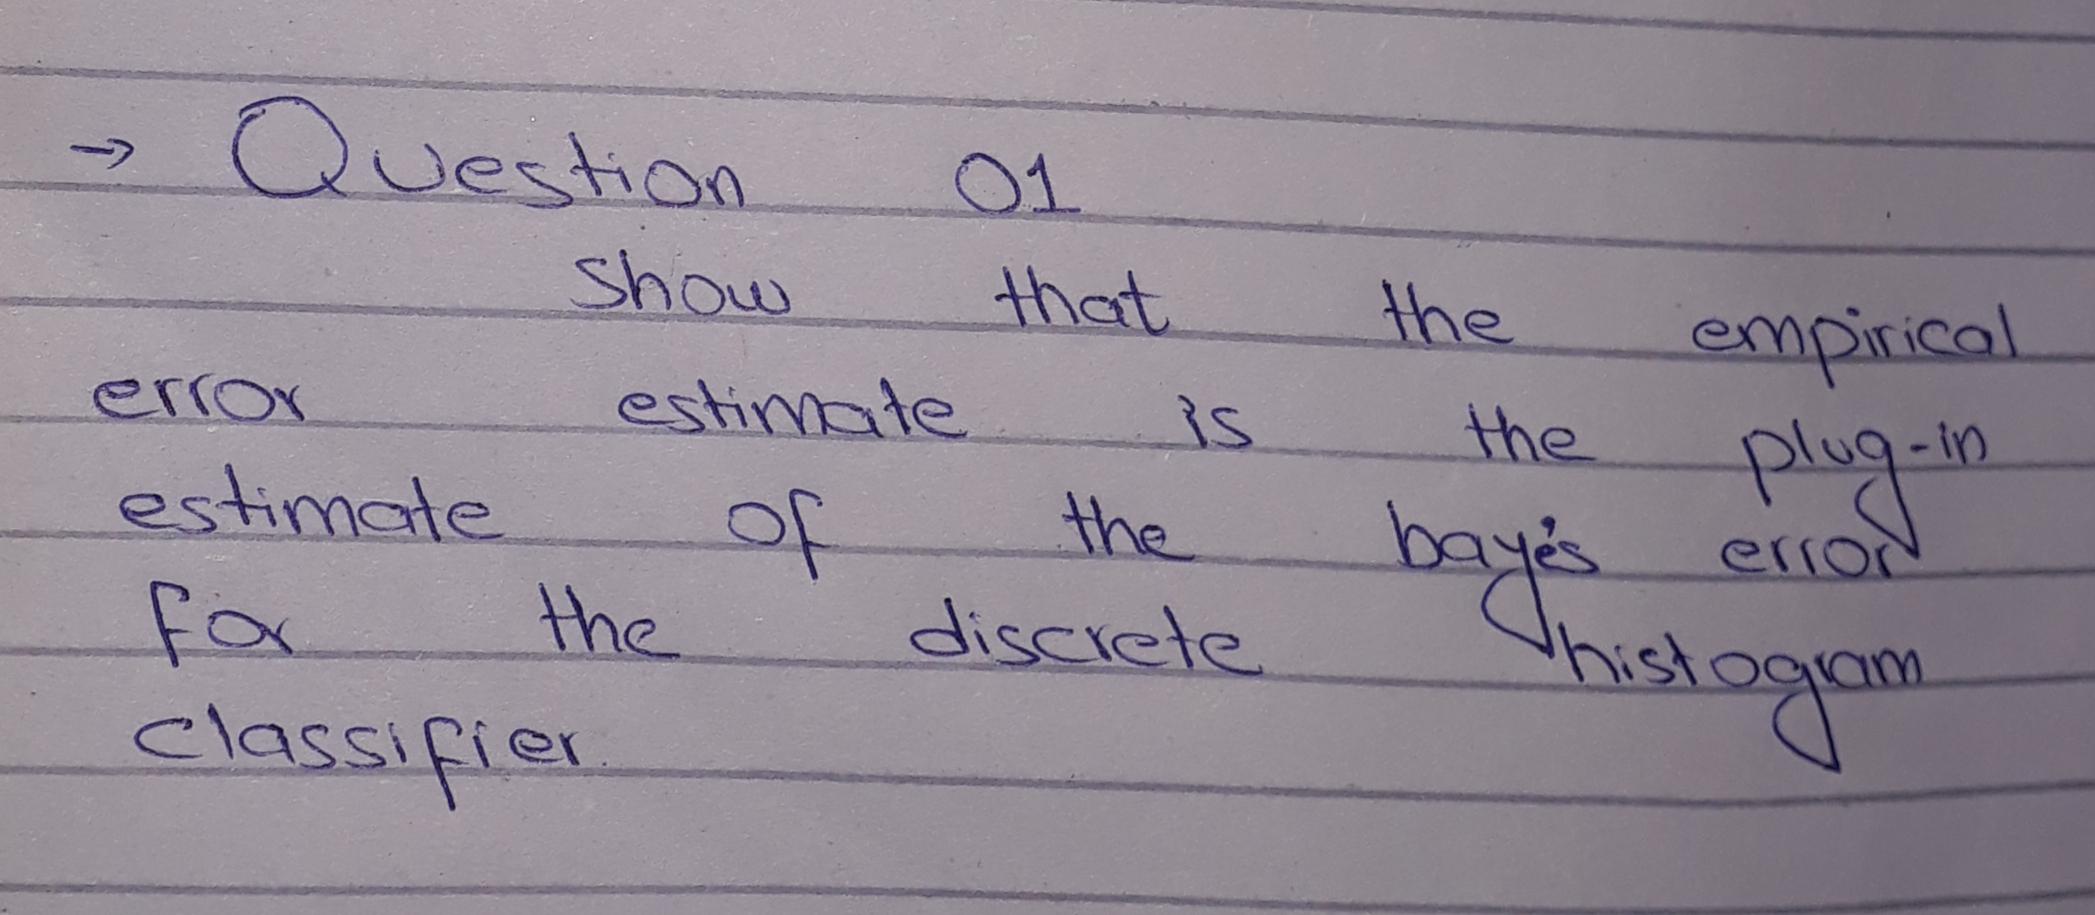 → Question 01
Show that the empirical
error estimate is the plug-in
estimate of the baye's error
for the discrete histogram
classifier.